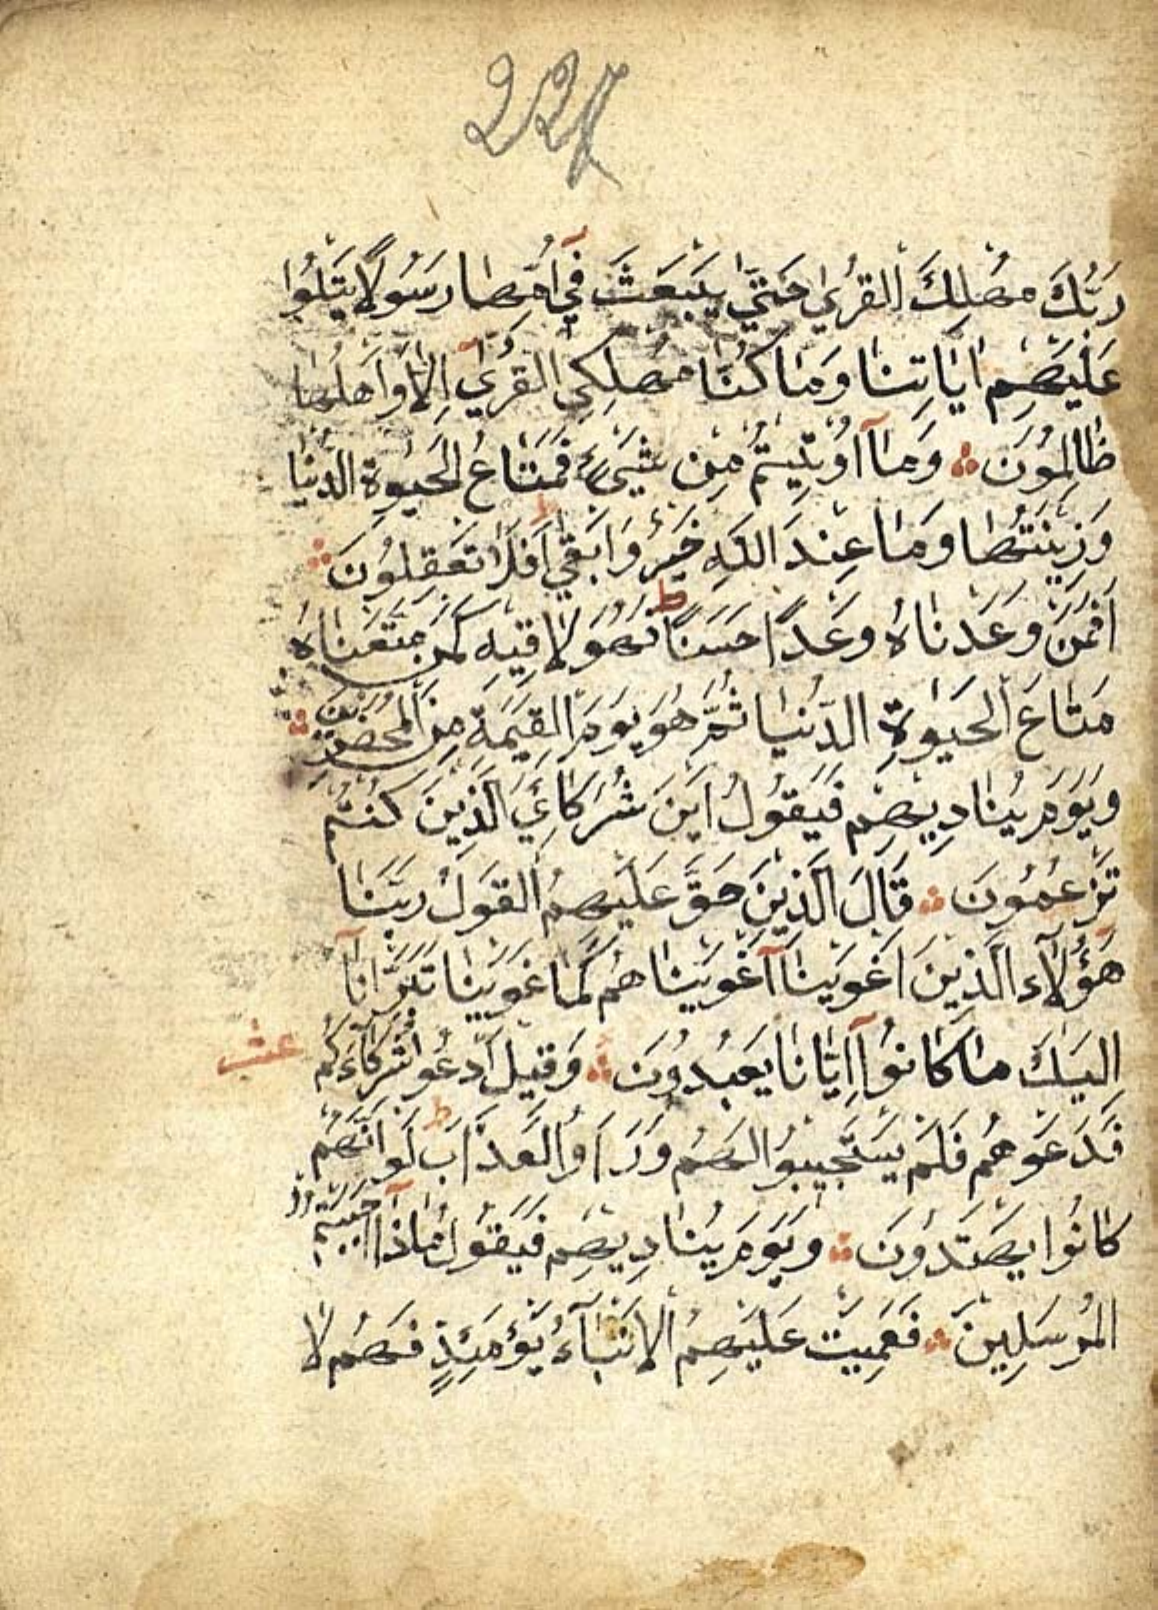 227
رَبُّكَ مُهْلِكَ الْقُرٰي حَتّٰي يَبْعَثَ فٖٓي اُمِّهَا رَسُولًا يَتْلُوا
عَلَيْهِمْ اٰيَاتِنَا وَمَا كُنَّا مُهْلِكِي الْقُرٰٓي اِلَّا وَاَهْلُهَا
ظَالِمُونَ وَمَآ اُوتٖيتُمْ مِنْ شَيْءٍ فَمَتَاعُ الْحَيٰوةِ الدُّنْيَا
وَزٖينَتُهَا وَمَا عِنْدَ اللّٰهِ خَيْرٌ وَاَبْقٰي ط اَفَلَا تَعْقِلُونَ
اَفَمَنْ وَعَدْنَاهُ وَعْدًا حَسَنًا ط فَهُوَ لَاقٖيهِ كَمَنْ مَتَّعْنَاهُ
مَتَاعَ الْحَيٰوةِ الدُّنْيَا ثُمَّ هُوَ يَوْمَ الْقِيٰمَةِ مِنَ الْمُحْضَرٖينَ
وَيَوْمَ يُنَادٖيهِمْ فَيَقُولُ اَيْنَ شُرَكَائِيَ الَّذٖينَ كُنْتُمْ
تَزْعُمُونَ قَالَ الَّذٖينَ حَقَّ عَلَيْهِمُ الْقَوْلُ رَبَّنَا
هٰٓؤُلَآءِ الَّذٖينَ اَغْوَيْنَآ اَغْوَيْنَاهُمْ كَمَا غَوَيْنَا تَبَرَّاْنَآ
اِلَيْكَ مَا كَانُٓوا اِيَّانَا يَعْبُدُونَ وَقٖيلَ ادْعُوا شُرَكَآءَكُمْ
عشـ
فَدَعَوْهُمْ فَلَمْ يَسْتَجٖيبُوا لَهُمْ وَرَاَوُا الْعَذَابَ ط لَوْ اَنَّهُمْ
كَانُوا يَهْتَدُونَ وَيَوْمَ يُنَادٖيهِمْ فَيَقُولُ مَاذَآ اَجَبْتُمُ
الْمُرْسَلٖينَ فَعَمِيَتْ عَلَيْهِمُ الْاَنْبَآءُ يَوْمَئِذٍ فَهُمْ لَا